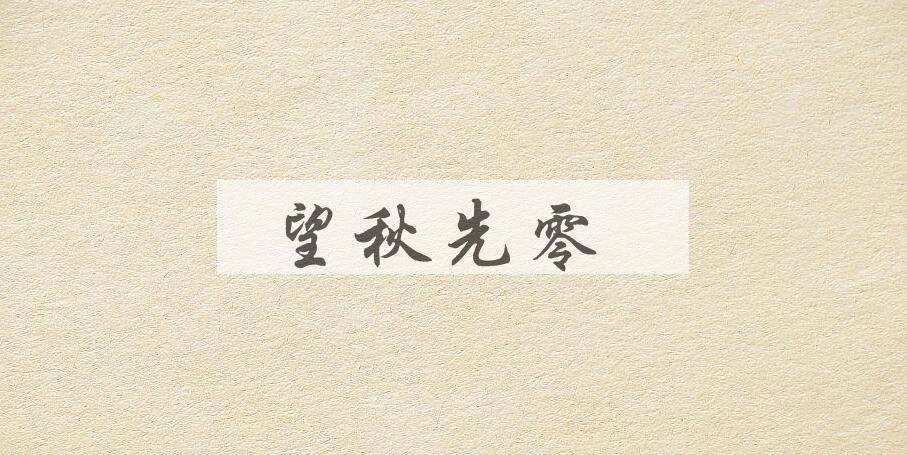 望秋先零